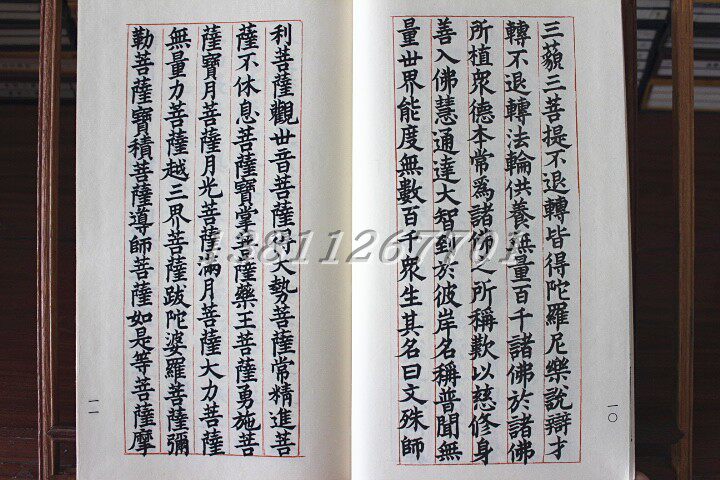 三藐三菩提不退轉皆得陀羅尼樂說辯才
轉不退轉法輪供養無量百千諸佛於諸佛
所植眾德本常為諸佛之所稱歎以慈修身
善入佛慧通達大智到於彼岸名稱普聞無
量世界能度無數百千眾生其名曰文殊師
一〇
利菩薩觀世音菩薩得大勢菩薩常精進菩
薩不休息菩薩寶掌菩薩藥王菩薩勇施菩
薩寶月菩薩月光菩薩滿月菩薩大力菩薩
無量力菩薩越三界菩薩跋陀婆羅菩薩彌
勒菩薩寶積菩薩導師菩薩如是等菩薩摩
一一
13811267701